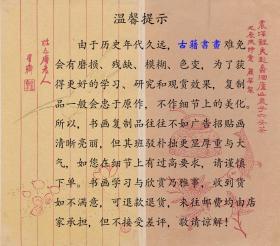 温馨提示
由于历史年代久远,古籍書畫难免
会有磨损、残缺、模糊、色变,为了获
得更好的学习、研究和观赏效果,复制
品一般会忠于原作,不作细节上的美化。
所以,书画复制品往往不如广告招贴画
清晰亮丽,但其斑驳朴拙更显厚重与大
气,如您在细节上有过高要求,请谨慎
下单。书画学习与欣赏乃雅事,收到货
如不满意,可退款退货,来往邮费均由店
家承担,但不接受差评,敬请谅解!